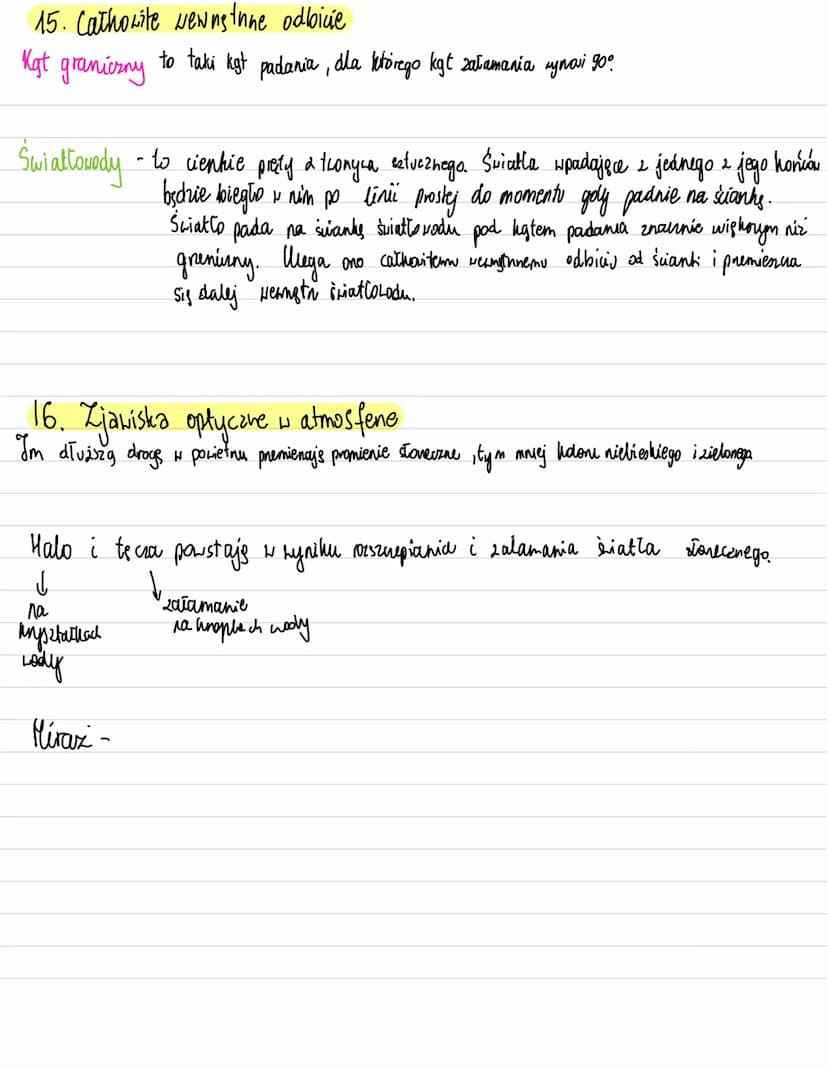 15. Całkowite wewnętrzne odbicie
Kąt graniczny to taki kąt padania, dla którego kąt załamania wynosi 90°
Światłowody - to cienkie pręty z tworzywa sztucznego. Światła wpadające z jednego z jego końców
będzie biegło w nim po linii prostej do momentu gdy padnie na ściankę.
Światło pada na ściankę światłowodu pod kątem padania znacznie większym niż
graniczny. Ulega ono całkowitemu wewnętrznemu odbiciu od ścianki i przemieszcza
się dalej wewnątrz światłowodu.
16. Zjawiska optyczne w atmosferze
Im dłuższą drogę w powietrzu przemierzają promienie słoneczne, tym mniej koloru niebieskiego i zielonego
Halo i tęcza powstają w wyniku rozszczepiania i załamania światła słonecznego.
↓ ↘
na załamanie
kryształkach na kroplach wody
wody
Miraż -